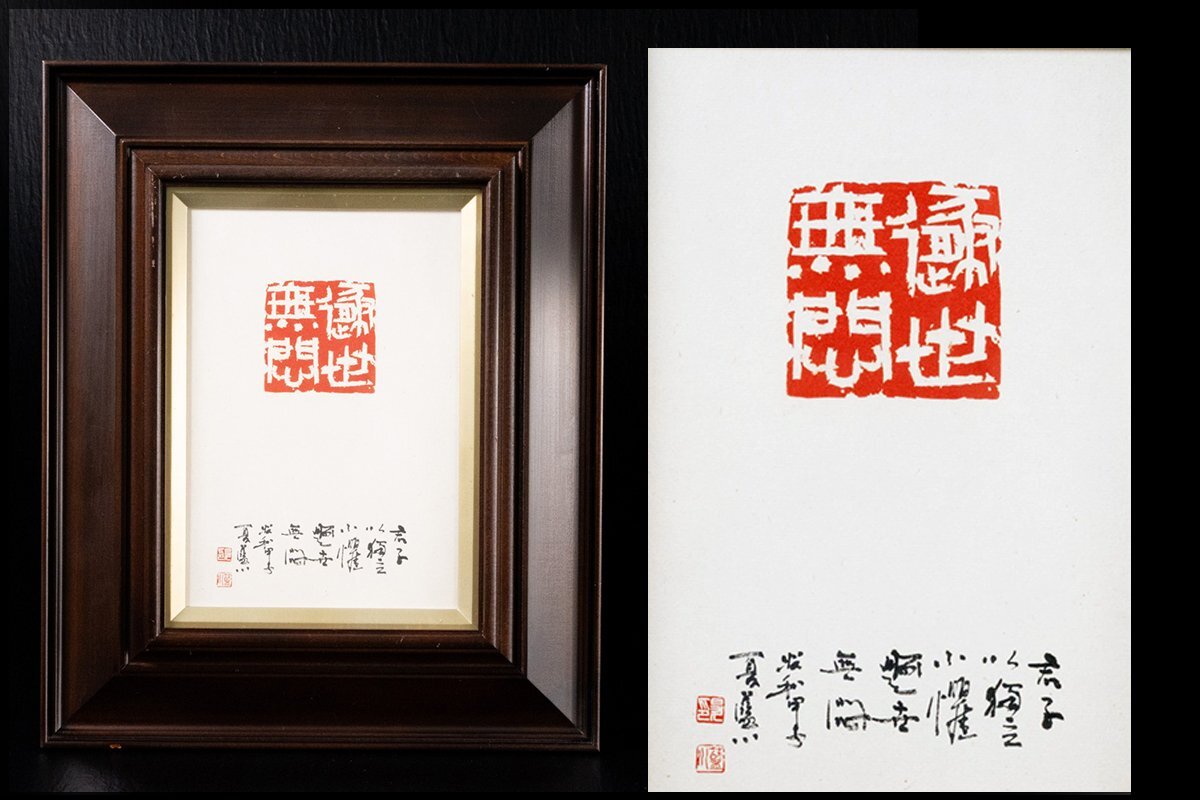 遯世
無悶
君子
以獨立
不懼
遯世
無悶
昭和甲子
夏
遯世
無悶
君子
以獨立
不懼
遯世
無悶
昭和甲子
夏